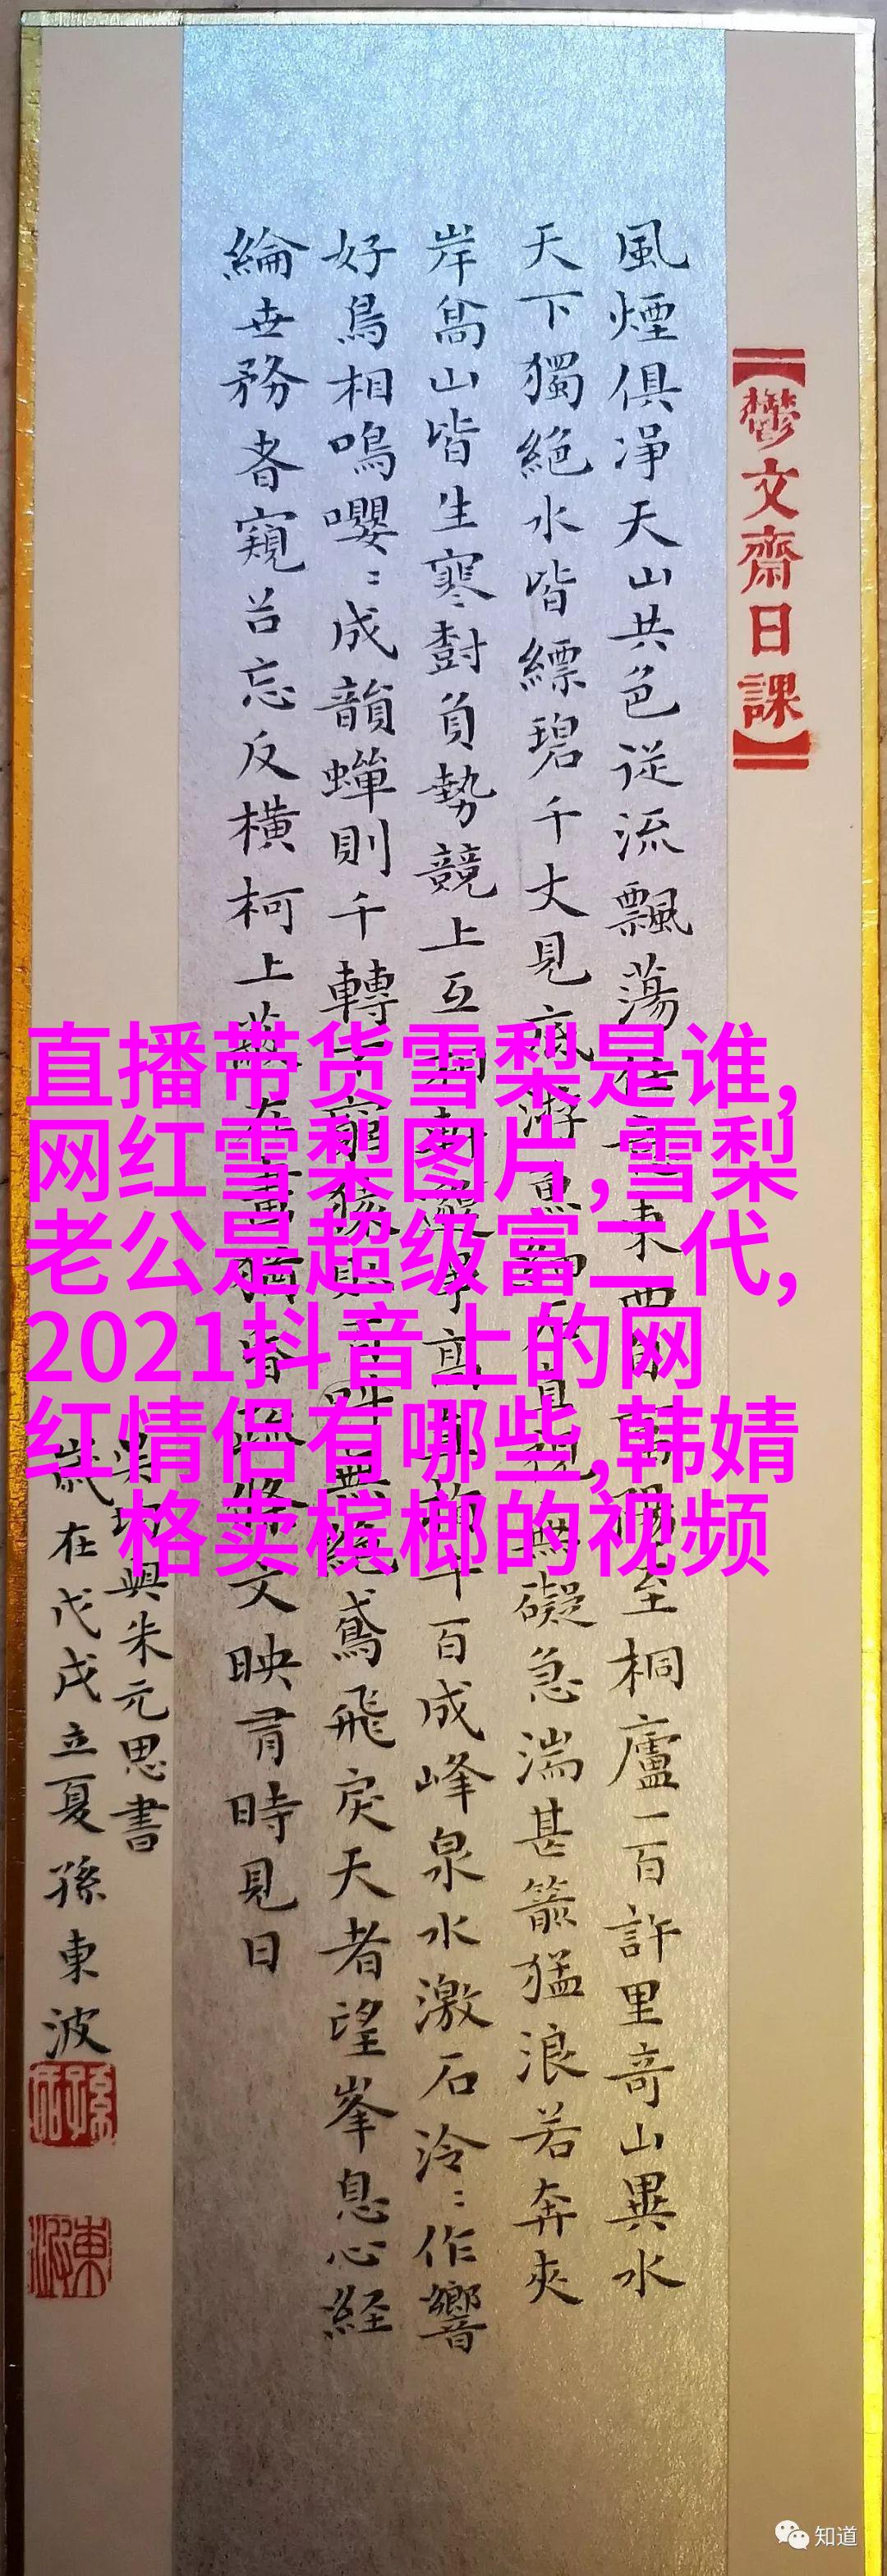 【鬱文齋日課】
風煙俱淨天山共色従流飄蕩東西陽至桐廬一百許里奇山異水
天下獨絕水皆縹碧千丈見底游魚直視無礙急湍甚箭猛浪若奔夾
岸高山皆生寒樹負勢競上互相爭高千百成峰泉水激石泠〻作響
好鳥相鳴嚶〻成韻蟬則千轉窮猿則無絕鳶飛戾天者望峯息心経
綸世務者窺谷忘反橫柯上蔽在晝猶昏交映有時見日
吳均與朱元思書
歲在戊戌立夏孫東波
直播带货雪梨是谁,
网红雪梨图片,雪梨
老公是超级富二代,
2021抖音上的网
红情侣有哪些,韩婧
格卖槟榔的视频
知道